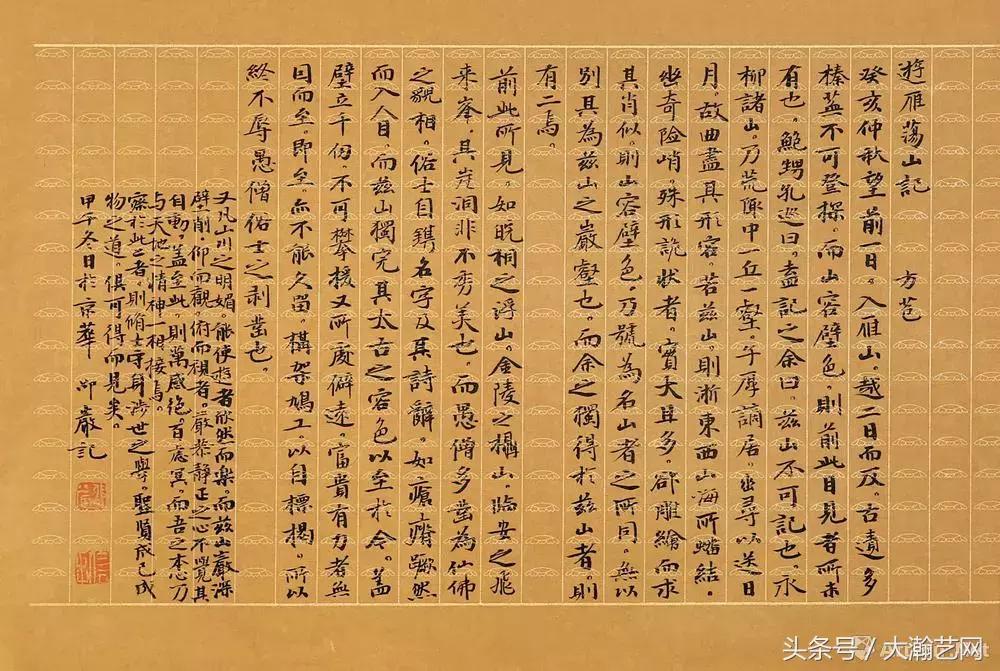 遊雁蕩山記 方苞
癸亥仲秋望前一日。入雁山。越二日而反。古遺多
榛蕪不可登探。而山容壁色。則前此目見者所未
有也。鮑甥孔巡曰。盍記之。余曰。茲山不可記也。永
柳諸山。乃荒陬中一丘一壑。子厚謫居。幽尋以送日
月。故曲盡其形容。若茲山。則浙東西山海所蟠結。
幽奇險峭。殊形詭狀者。實大且多。欲雕繪而求
其肖似。則山容壁色。乃號為名山者之所同。無以
別其為茲山之巖壑也。而余之獨得於茲山者。則
有二焉。
前此所見。如皖桐之浮山。金陵之攝山。臨安之飛
來峯。其崖洞非不秀美也。而愚僧多鑿為仙佛
之貌相。俗士自鐫名字及其詩辭。如瘡痏蹶然
而入人目。而茲山獨完其太古之容色以至於今。蓋
壁立千仞。不可攀援。又所處僻遠。富貴有力者無
因而至。即至。亦不能久留。構架鳩工。以自標揭。所以
終不辱愚僧俗士之剥鑿也。
又凡山川之明媚。能使遊者欣然而樂。而茲山巖深
壁削。仰而觀。俯而視者。嚴恭靜正之心不覺其
自動。蓋至此。則萬感絕。百慮冥。而吾之本心乃
与天地之精神一相接焉。
察於此二者。則脩士守身涉世之學。聖賢成己成
物之道。俱可得而見矣。
甲午冬日於京華 卬巖記
头条号 / 大瀚艺网